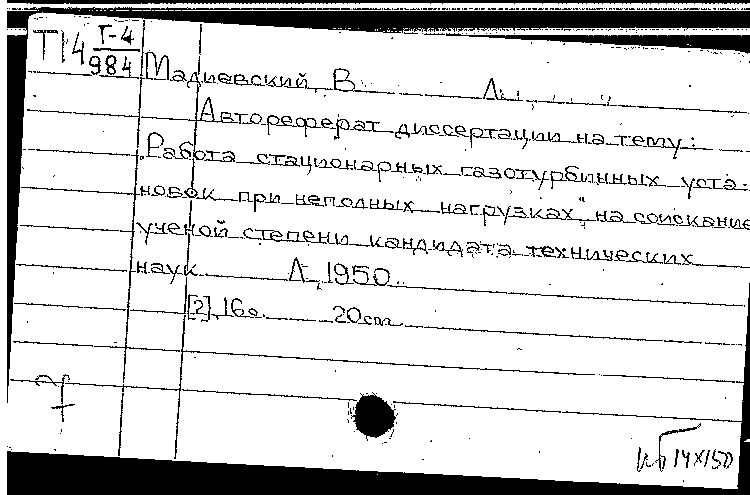 П4 Г-4
984
Мадиевский, В. Л.
Автореферат диссертации на тему:
„Работа стационарных газотурбинных уста-
новок при неполных нагрузках", на соискание
ученой степени кандидата технических
наук Л., 1950.
[2], 16 с. 20 cm.
14x150